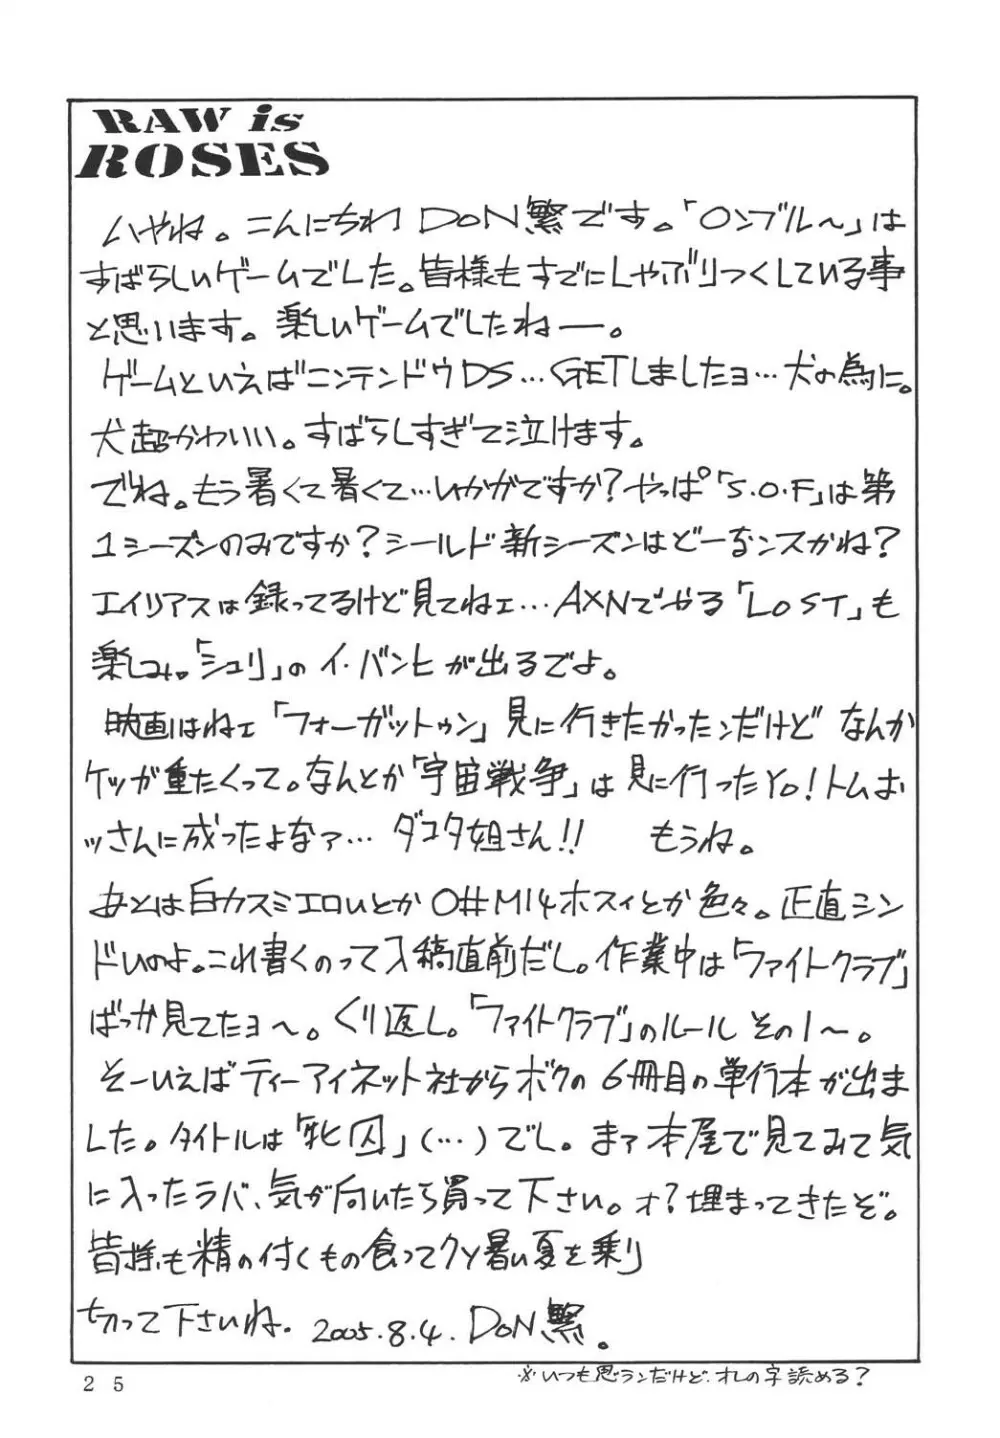 RAW is
ROSES
ハやね。こんにちわ DoN繁です。「ロンブル～」は
すばらしいゲームでした。皆様もすでにしゃぶりつくしている事
と思います。楽しいゲームでしたねー。
ゲームといえばニンテンドウDS…GETしましたョ…犬の為に。
犬超かわいい。すばらしすぎて泣けます。
でね。もう暑くて暑くて…いかがですか?やっぱ「S.O.F」は第
1シーズンのみですか?シールド新シーズンはどーなンスかね?
エイリアスは録ってるけど見てねェ…AXNでやる「LOST」も
楽しみ。「シュリ」のイ・バンヒが出るでよ。
映画はねェ「フォーガットゥン」見に行きたかったンだけど なんか
ケツが重たくって。なんとか「宇宙戦争」は見に行ったYo!トムお
ッさんに成ったよなァ… ダコタ姐さん!! もうね。
あとは白カスミエロいとか O#M14ホスィとか色々。正直シン
ドいのよ。これ書くのって入稿直前だし。作業中は「ファイトクラブ」
ばっか見てたョ～。くり返し。「ファイトクラブ」のルール その1～。
そーいえばティーアイネット社からボクの6冊目の単行本が出ま
した。タイトルは「牝囚」(…)でし。まァ本屋で見てみて気
に入ったラバ、気が向いたら買って下さい。オ?埋まってきたぞ。
皆様も精の付くもの食ってクソ暑い夏を乗り
切って下さいね。2005.8.4. DoN繁。
25
※いつも思うンだけど、オレの字読める?